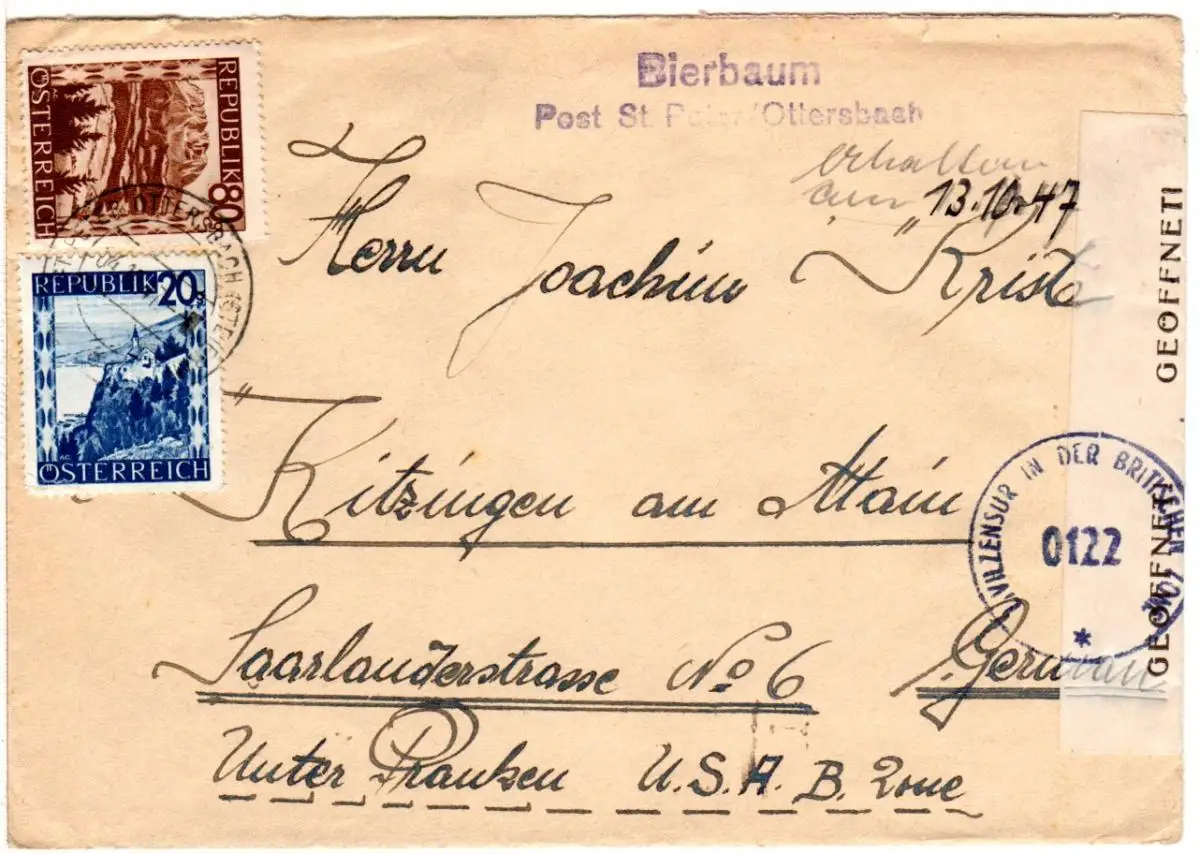 REPUBLIK 80
ÖSTERREICH
REPUBLIK 20g
ÖSTERREICH
OTTERSBACH (STEIE
Bierbaum
Post St. Peter/Ottersbach
erhalten
am 13.10.47
Herrn Joachim Krist
Kitzingen am Main
Saarlanderstrasse No 6 German
Unter Franken U.S.A. B. Zone
GEÖFFNET!
GEÖFFNET!
ZIVILZENSUR IN DER BRITISCHEN ZONE
0122
*